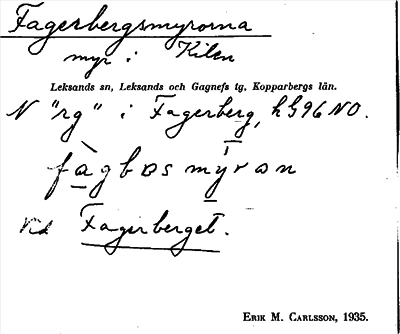 Fagerbergsmyrorna
myr i Kilen
Leksands sn, Leksands och Gagnefs tg, Kopparbergs län.
N "rg" i Fagerberg, k G96 NO.
Vid Fagerberget.
ERIK M. CARLSSON, 1935.